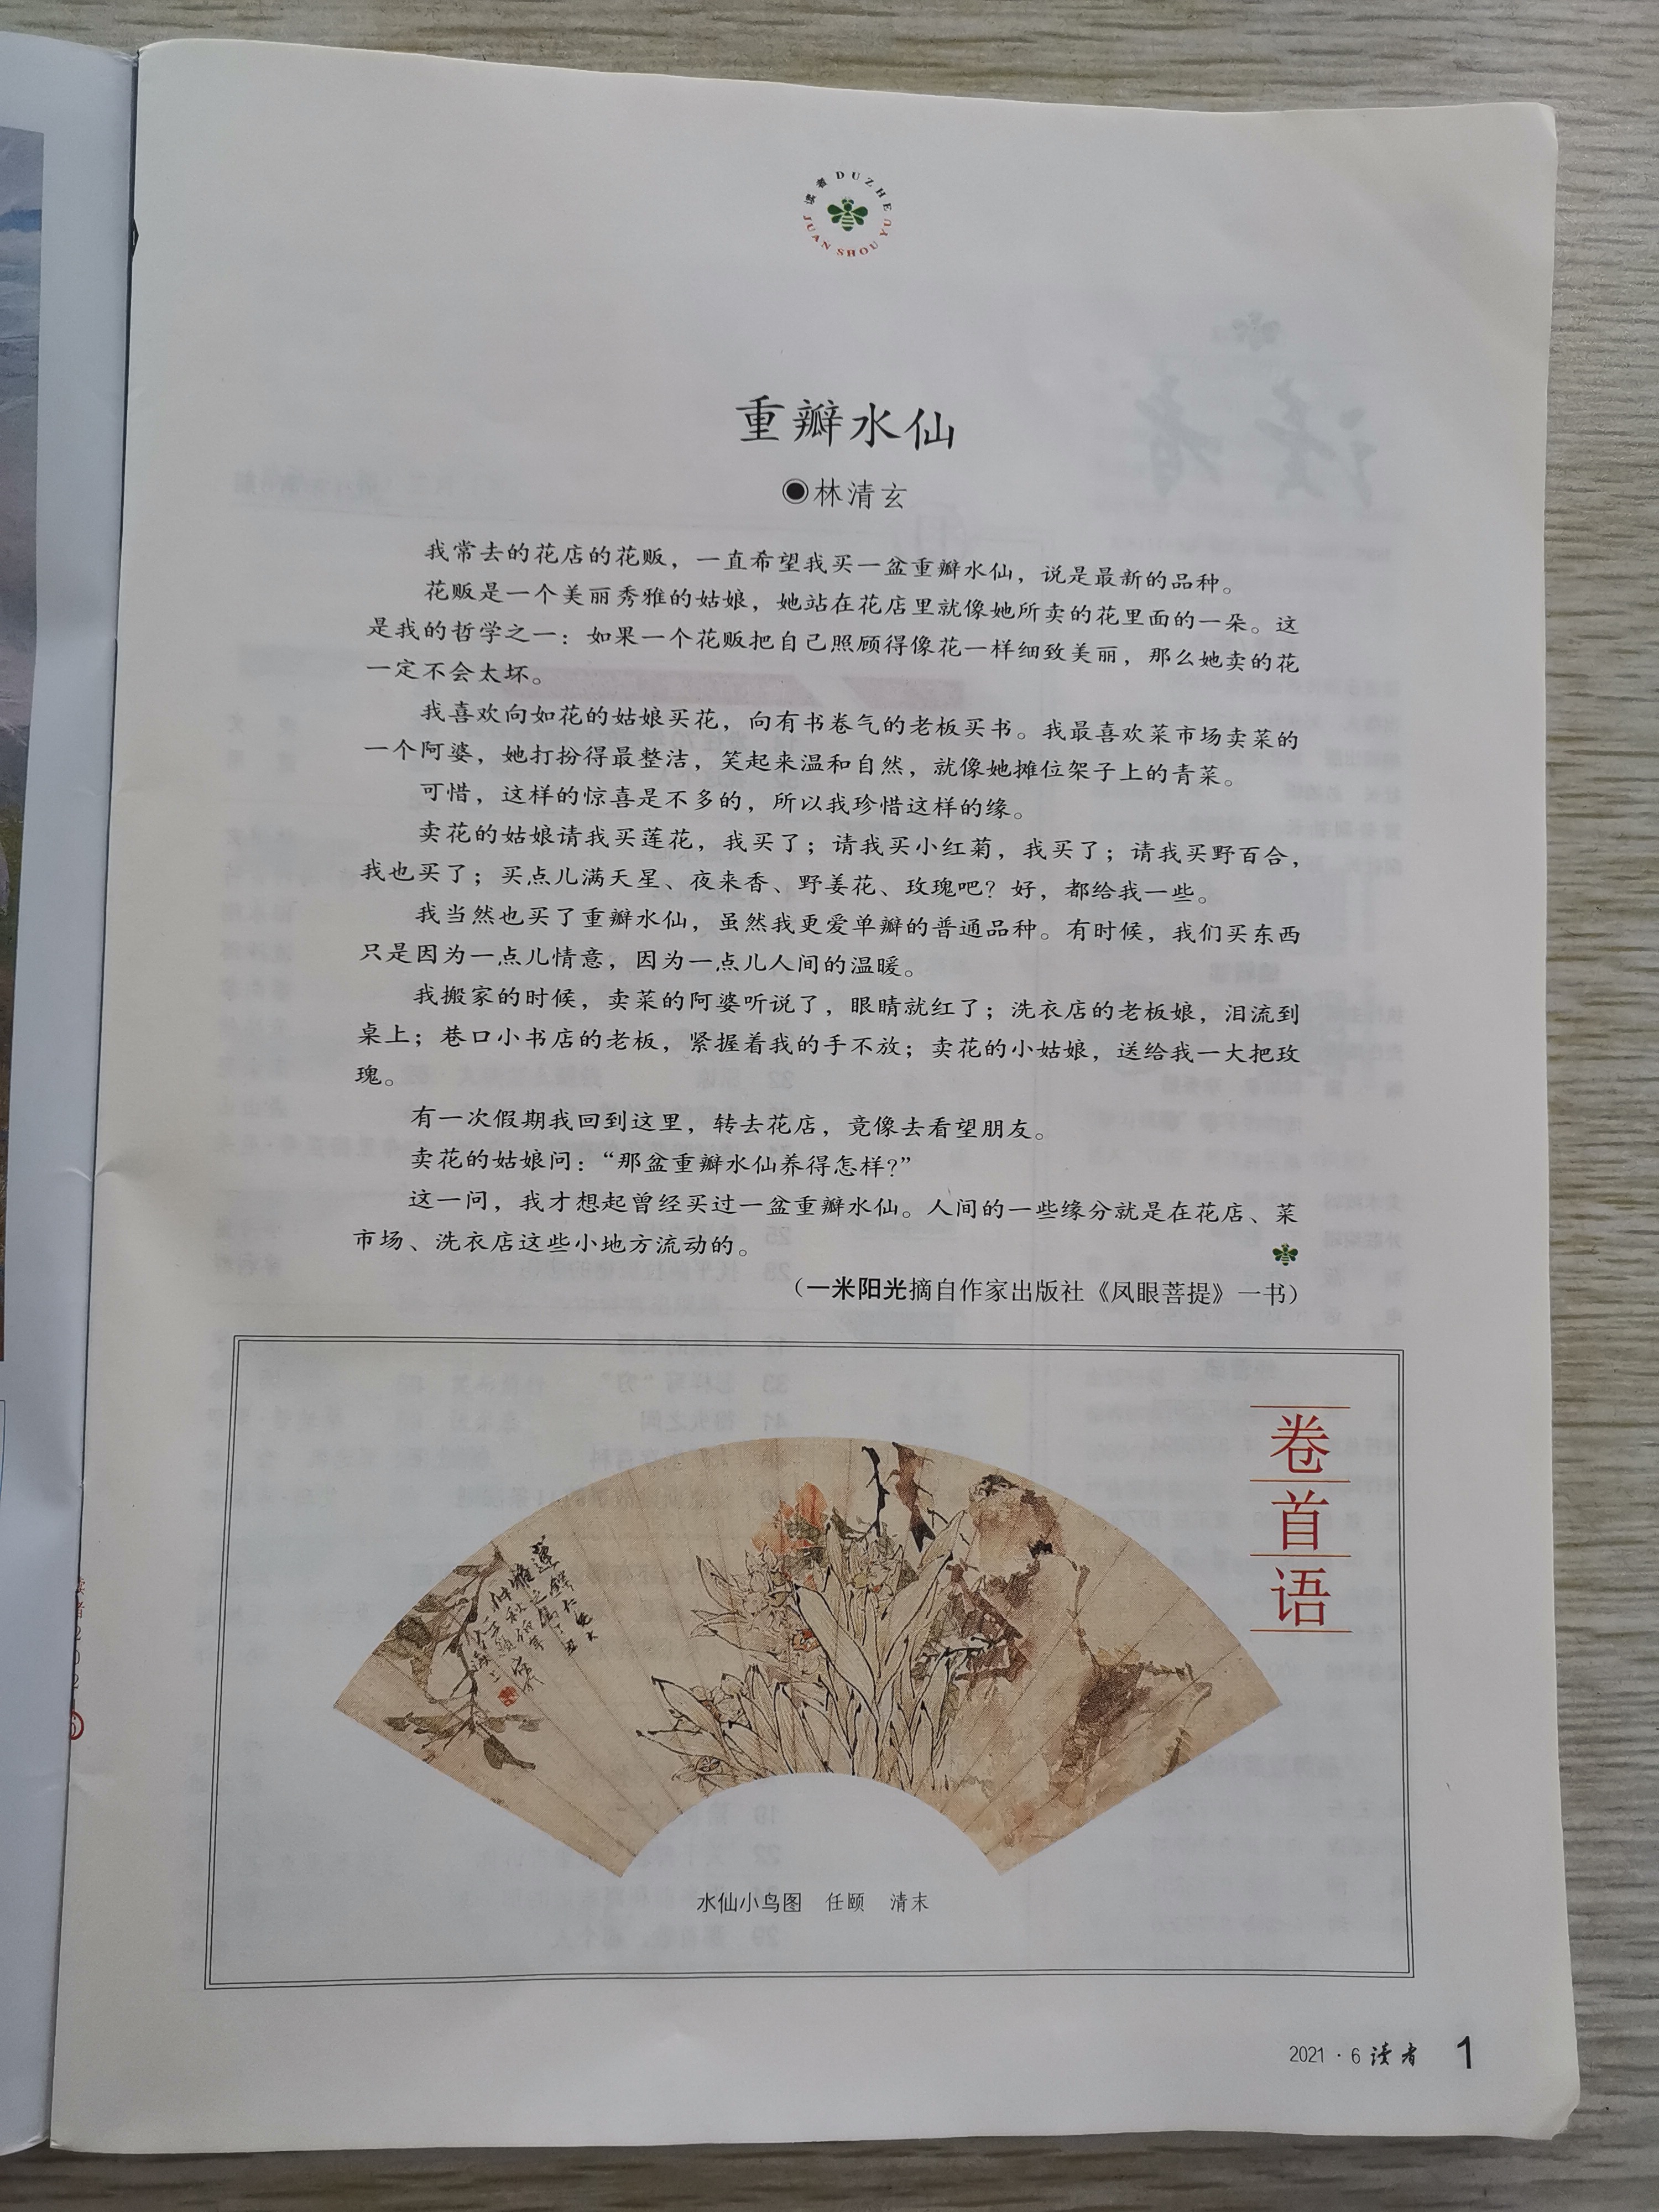 读者 DUZHE
JUAN SHOU YU
重瓣水仙
◉林清玄
我常去的花店的花贩，一直希望我买一盆重瓣水仙，说是最新的品种。
花贩是一个美丽秀雅的姑娘，她站在花店里就像她所卖的花里面的一朵。这
是我的哲学之一：如果一个花贩把自己照顾得像花一样细致美丽，那么她卖的花
一定不会太坏。
我喜欢向如花的姑娘买花，向有书卷气的老板买书。我最喜欢菜市场卖菜的
一个阿婆，她打扮得最整洁，笑起来温和自然，就像她摊位架子上的青菜。
可惜，这样的惊喜是不多的，所以我珍惜这样的缘。
卖花的姑娘请我买莲花，我买了；请我买小红菊，我买了；请我买野百合，
我也买了；买点儿满天星、夜来香、野姜花、玫瑰吧？好，都给我一些。
我当然也买了重瓣水仙，虽然我更爱单瓣的普通品种。有时候，我们买东西
只是因为一点儿情意，因为一点儿人间的温暖。
我搬家的时候，卖菜的阿婆听说了，眼睛就红了；洗衣店的老板娘，泪流到
桌上；巷口小书店的老板，紧握着我的手不放；卖花的小姑娘，送给我一大把玫
瑰。
有一次假期我回到这里，转去花店，竟像去看望朋友。
卖花的姑娘问：“那盆重瓣水仙养得怎样？”
这一问，我才想起曾经买过一盆重瓣水仙。人间的一些缘分就是在花店、菜
市场、洗衣店这些小地方流动的。
（一米阳光摘自作家出版社《凤眼菩提》一书）
卷首语
水仙小鸟图 任颐 清末
2021·6 读者 1